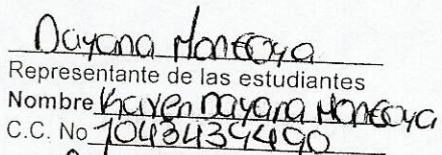 Dayana Montoya
Representante de las estudiantes
Nombre Karen Dayana Montoya
C.C. No 1043434490